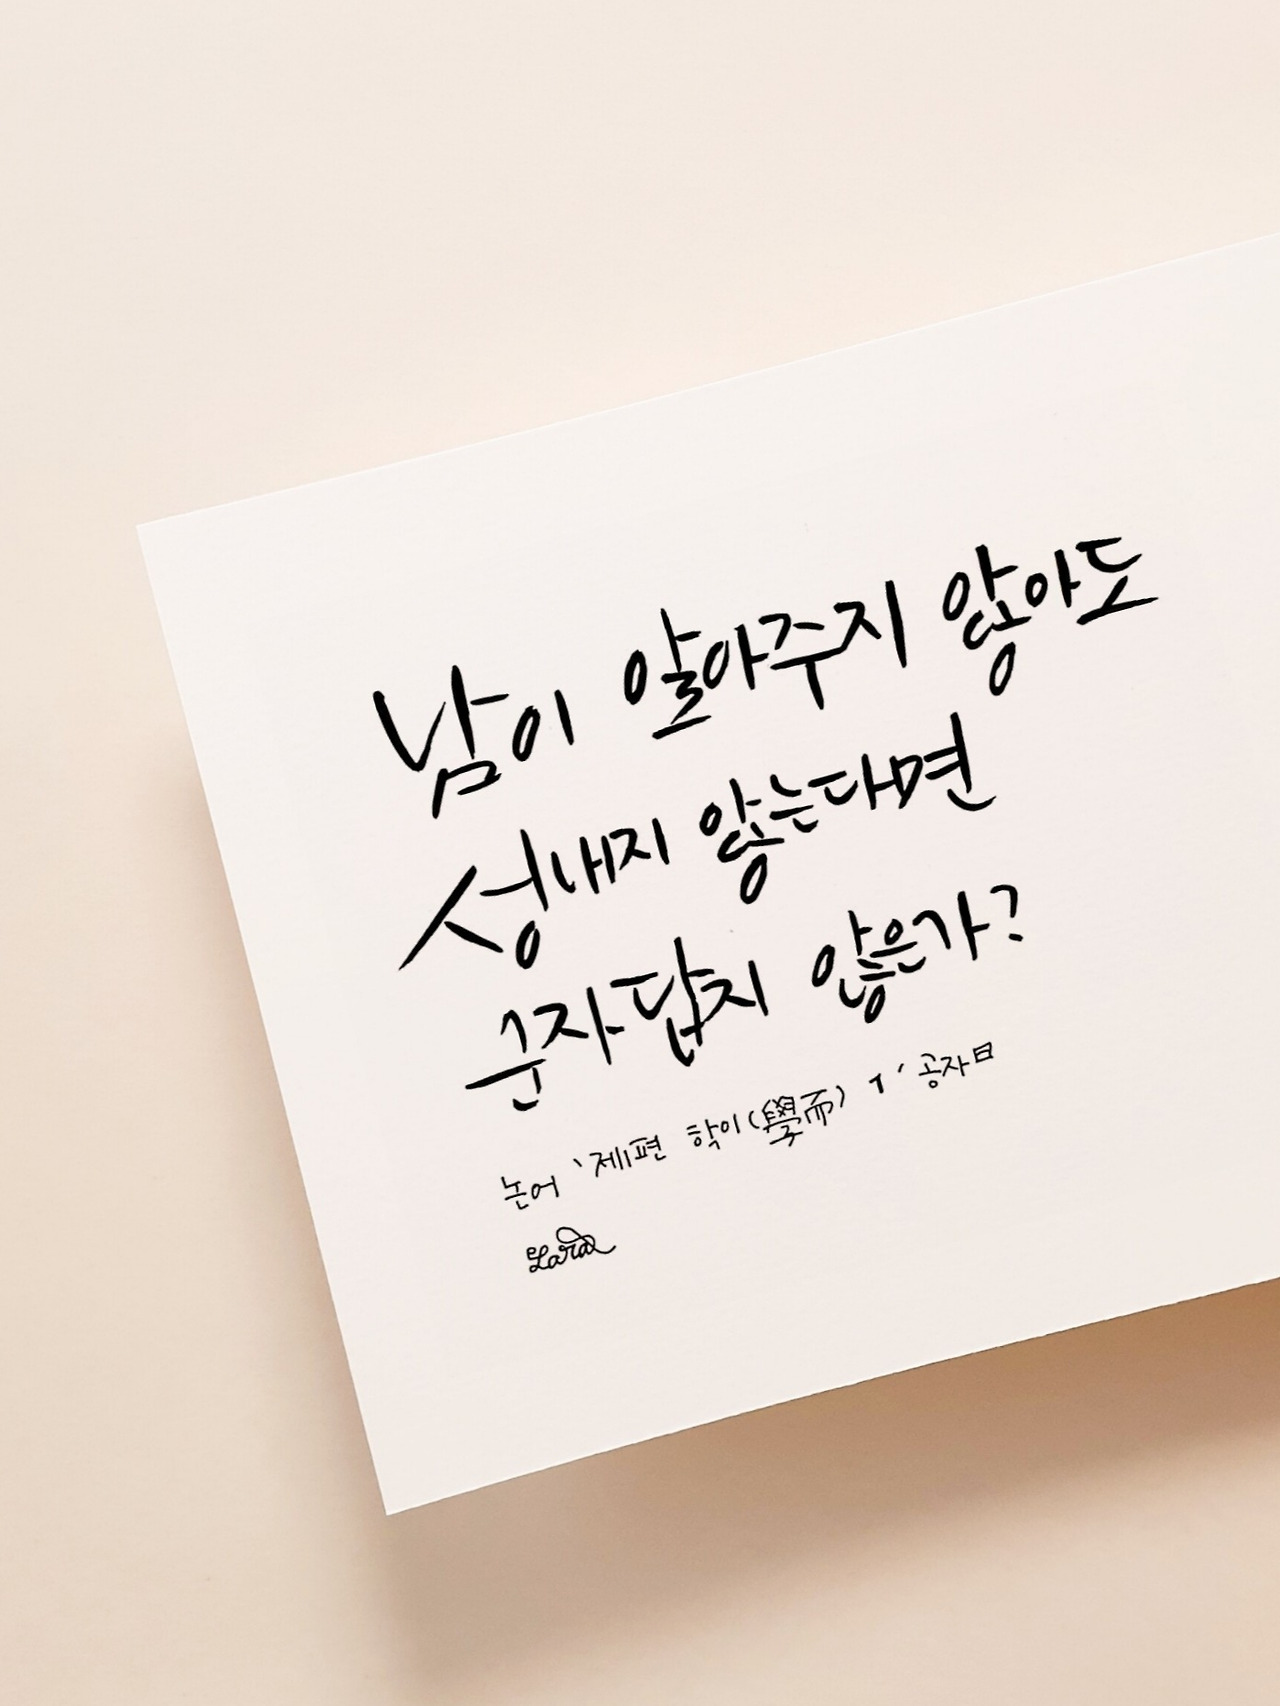 남이 알아주지 않아도
성내지 않는다면
군자답지 않은가?
논어 '제1편 학이(學而) 1' 공자曰
Lara